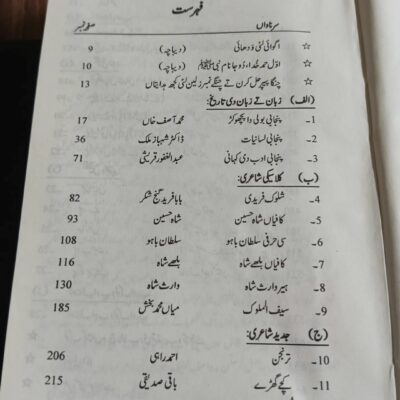 فہرست
سرناواں صفحہ نمبر
☆ اگوائی لئی ودھائی (دیباچہ) 9
☆ اوّل حمد خدا، دوجا نام نبی ﷺ (دیباچہ) 10
☆ چنگا پیپر حل کرن تے چنگے نمبر لین لئی کجھ ہدایتاں 13
(الف) زبان تے زبان دی تاریخ:
1۔ پنجابی بولی دا پچھوکڑ محمد آصف خاں 17
2۔ پنجابی لسانیات ڈاکٹر شہباز ملک 36
3۔ پنجابی ادب دی کہانی عبدالغفور قریشی 71
(ب) کلاسیکی شاعری:
4۔ شلوک فریدی بابا فرید گنج شکر 82
5۔ کافیاں شاہ حسین شاہ حسین 93
6۔ سی حرفی سلطان باہو سلطان باہو 108
7۔ کافیاں بلھے شاہ بلھے شاہ 116
8۔ ہیر وارث شاہ وارث شاہ 130
9۔ سیف الملوک میاں محمد بخش 185
(ج) جدید شاعری:
10۔ ترنجن احمد راہی 206
11۔ کچے گھڑے باقی صدیقی 215